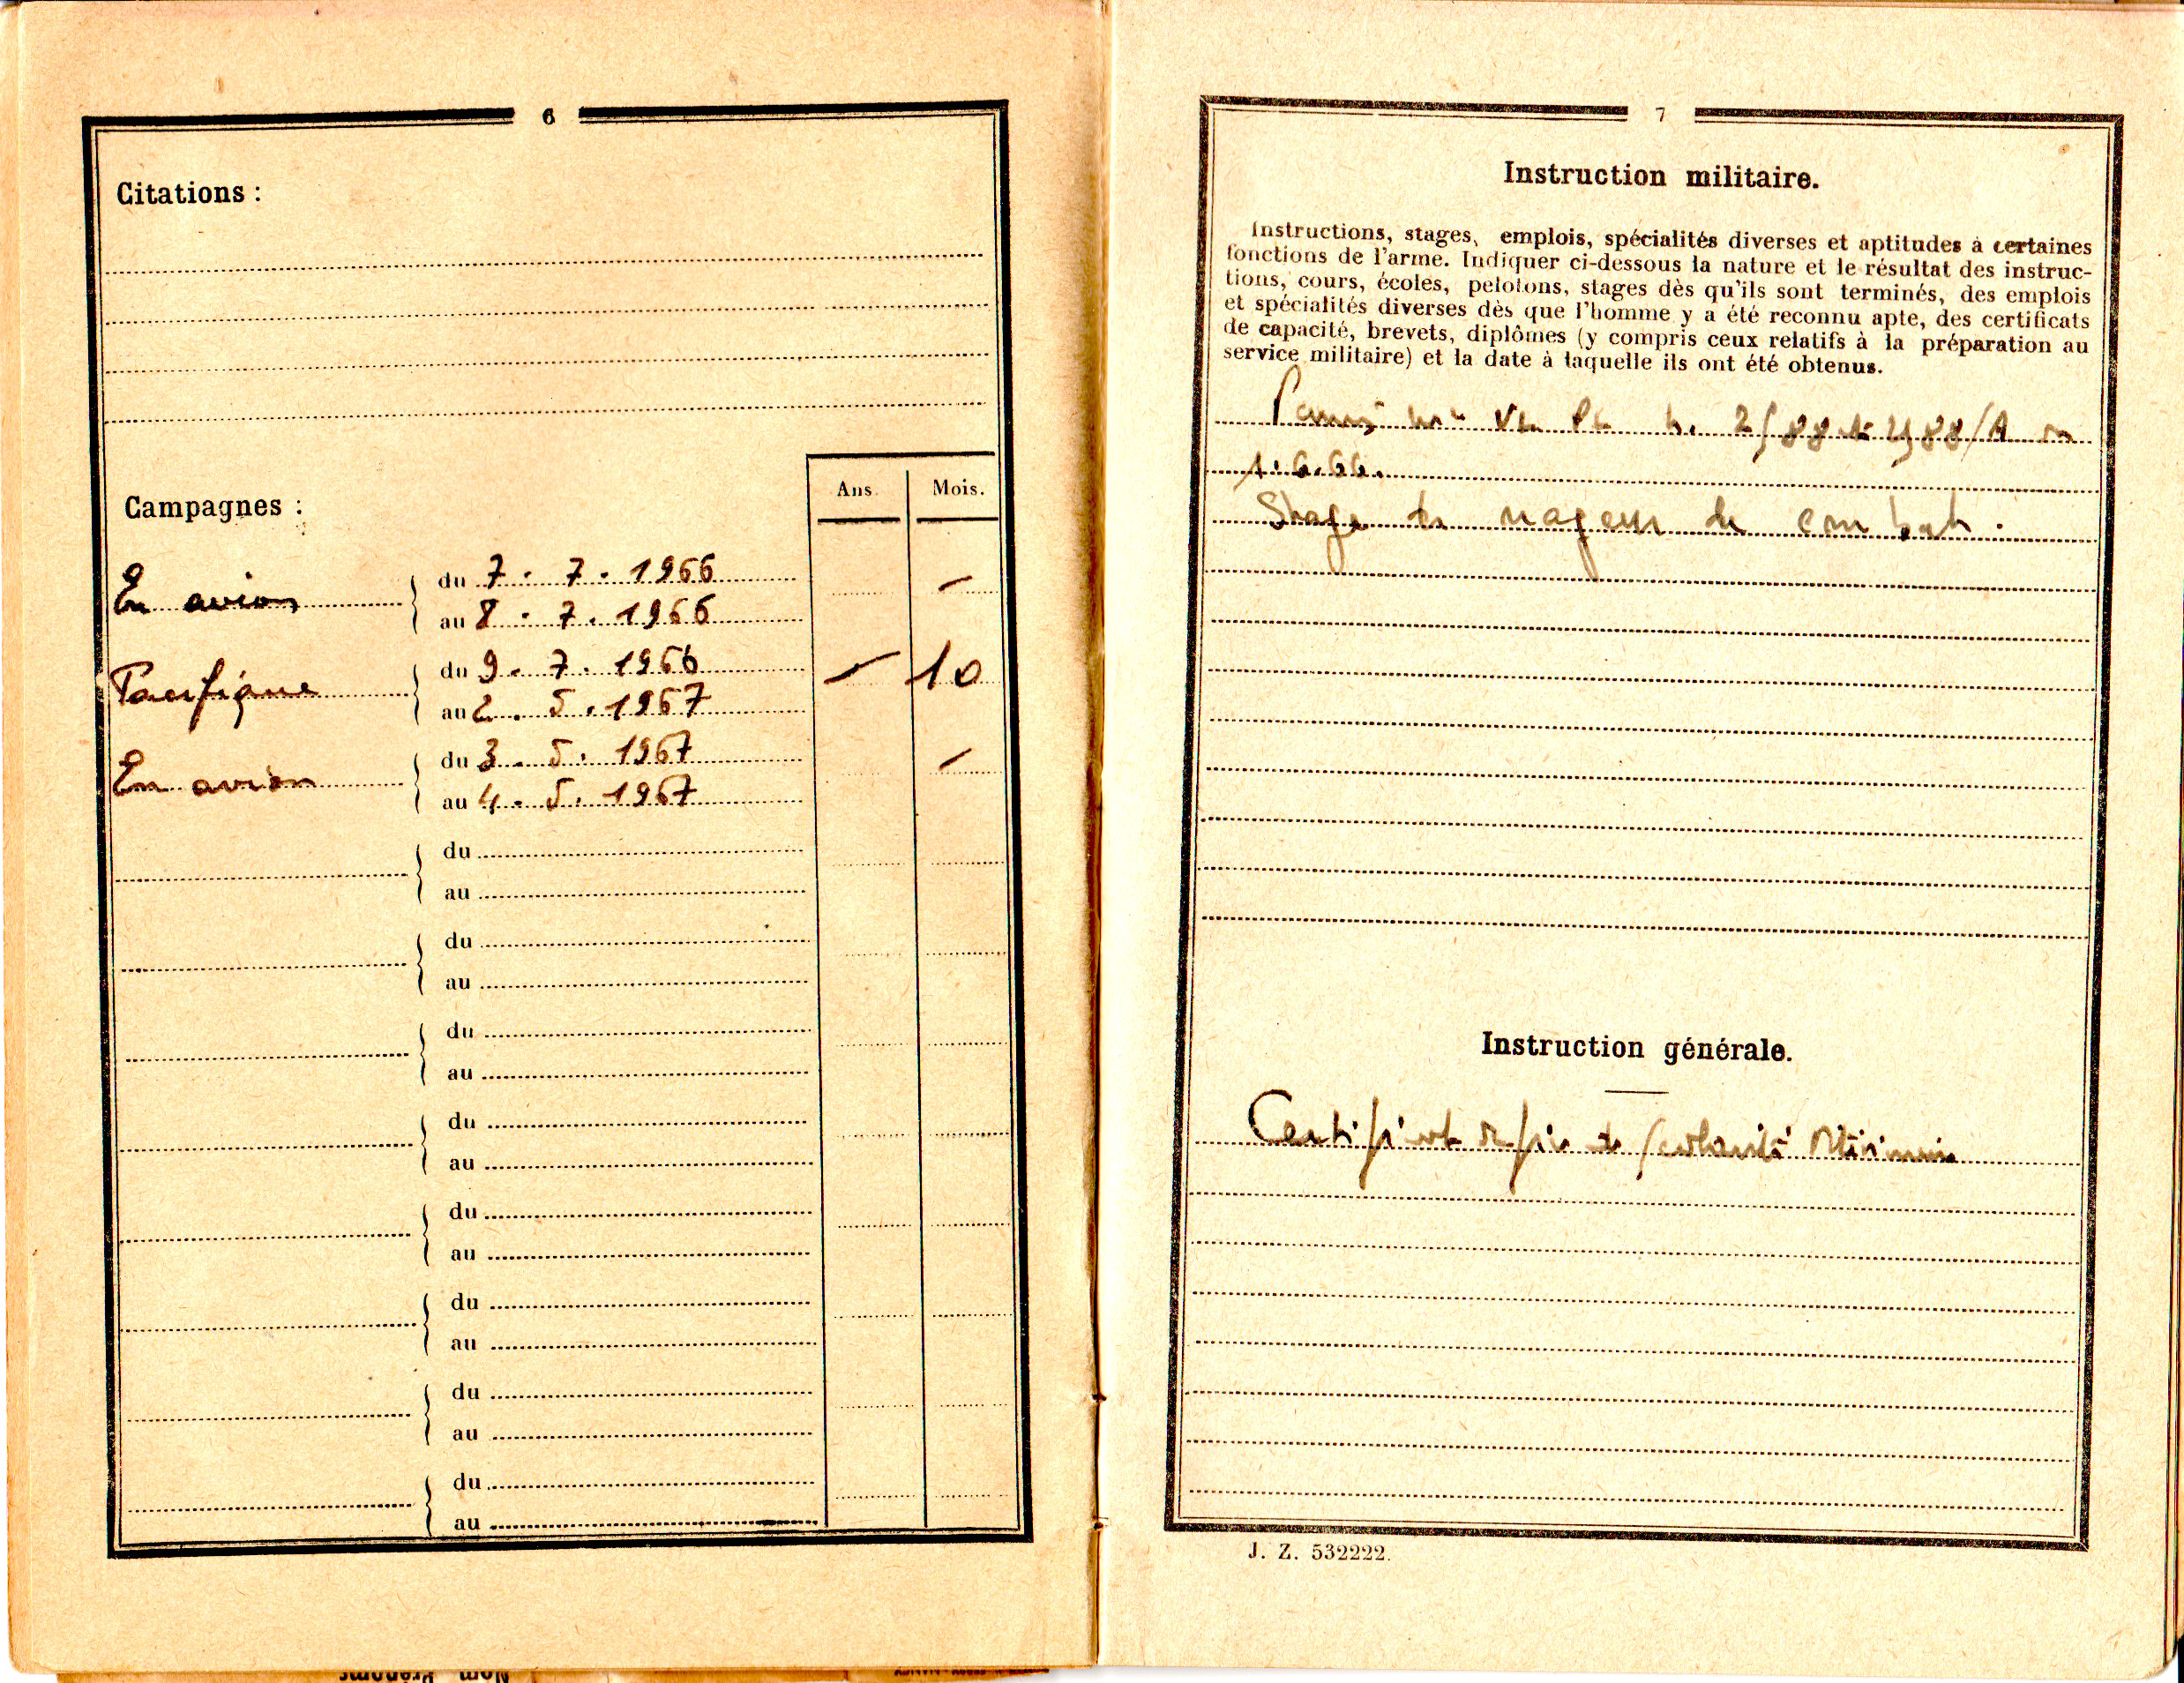 6
Citations :
Campagnes :
Ans.
Mois.
En avion
du 7. 7. 1966
au 8. 7. 1966
-
Pacifique
du 9. 7. 1966
au 2. 5. 1967
- 10
En avion
du 3. 5. 1967
au 4. 5. 1967
-
du
au
du
au
du
au
du
au
du
au
du
au
du
au
du
au
7
Instruction militaire.
Instructions, stages, emplois, spécialités diverses et aptitudes à certaines
fonctions de l'arme. Indiquer ci-dessous la nature et le résultat des instruc-
tions, cours, écoles, pelotons, stages dès qu'ils sont terminés, des emplois
et spécialités diverses dès que l'homme y a été reconnu apte, des certificats
de capacité, brevets, diplômes (y compris ceux relatifs à la préparation au
service militaire) et la date à laquelle ils ont été obtenus.
Permis VL PL
1.6.66.
Stage de nageur de combat.
Instruction générale.
Certificat de fin de scolarité
J. Z. 532222.
Nom Prénoms